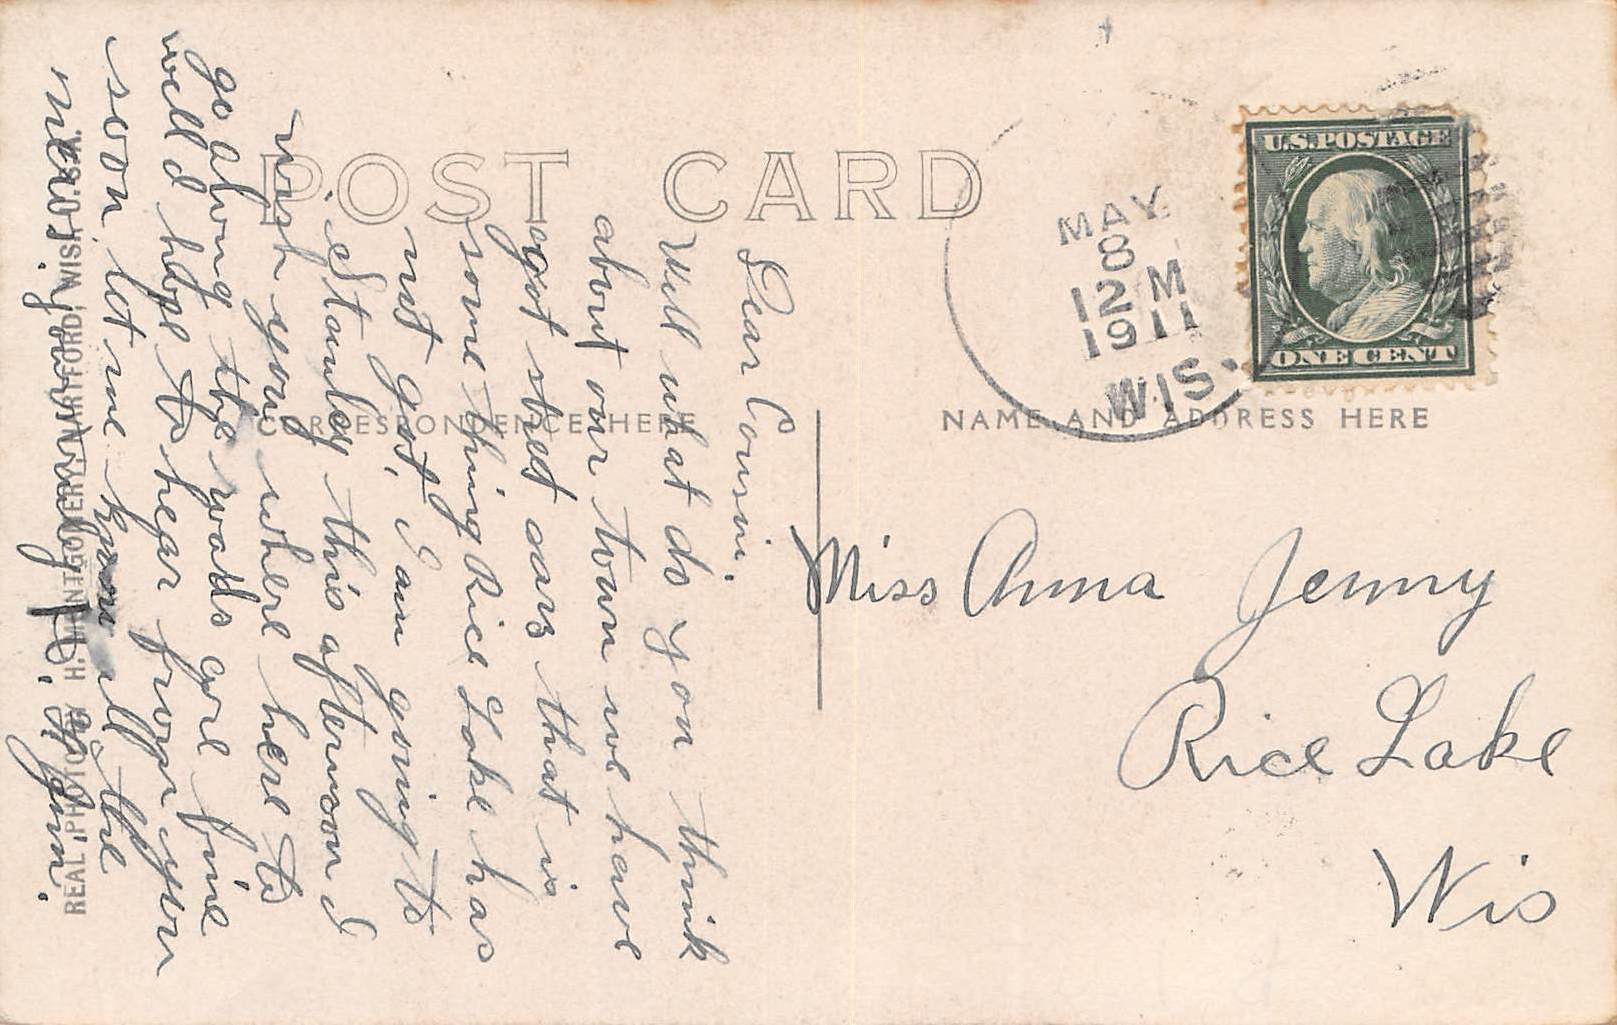 POST CARD
U.S. POSTAGE
ONE CENT
MAY
8
12 M
1911
WIS.
CORRESPONDENCE HERE
NAME AND ADDRESS HERE
Dear Cousin.
Will what do you think
about our town we have
got street cars that is
some thing Rice Lake has
not got, I am going to
Stanley this afternoon I
wish you where here to
go along the roads are fine
well I hope to hear from you
soon let me know all the
news
REAL PHOTO BY H. MONTGOMERY, HARTFORD, WIS., U.S.A.
Miss Anna Jenny
Rice Lake
Wis